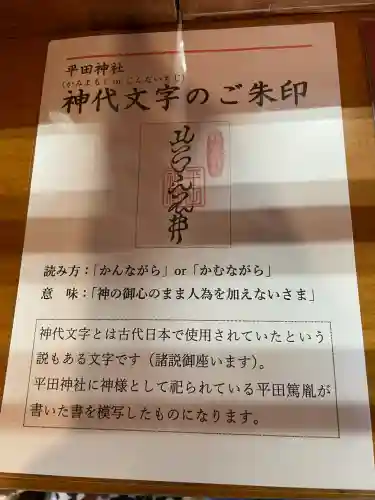 平田神社
(かみよもじ or じんだいもじ)
神代文字のご朱印
読み方：「かんながら」or「かむながら」
意　味：「神の御心のまま人為を加えないさま」
神代文字とは古代日本で使用されていたという
説もある文字です（諸説御座います）。
平田神社に神様として祀られている平田篤胤が
書いた書を模写したものになります。